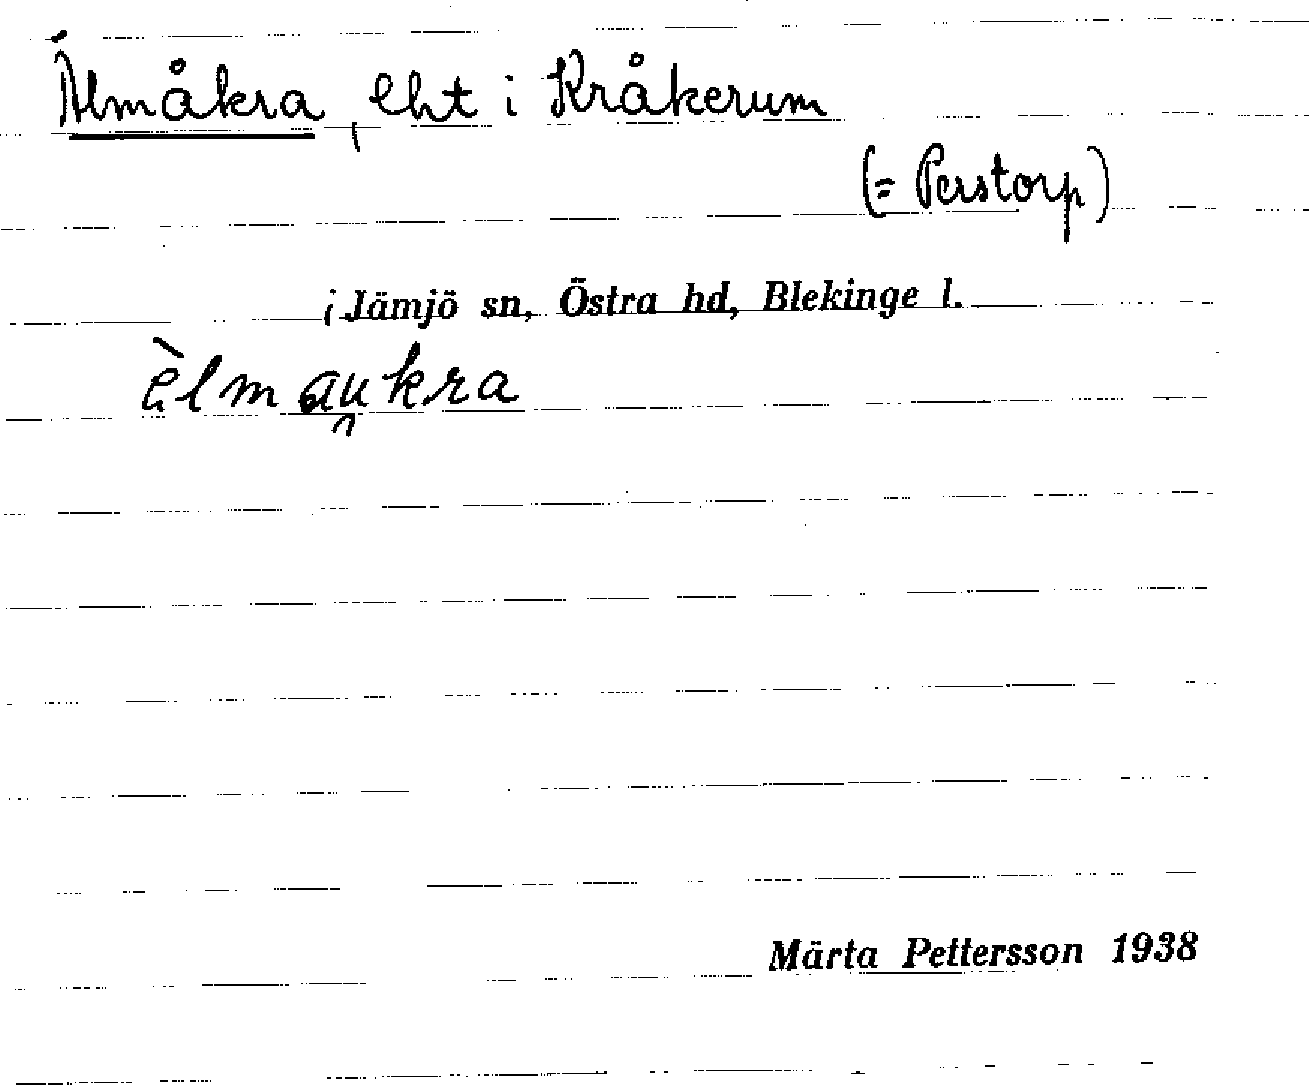 Älmåkra, eht i Kråkerum
(= Perstorp)
i Jämjö sn, Östra hd, Blekinge l.
èlmau̯kra
Märta Pettersson 1938